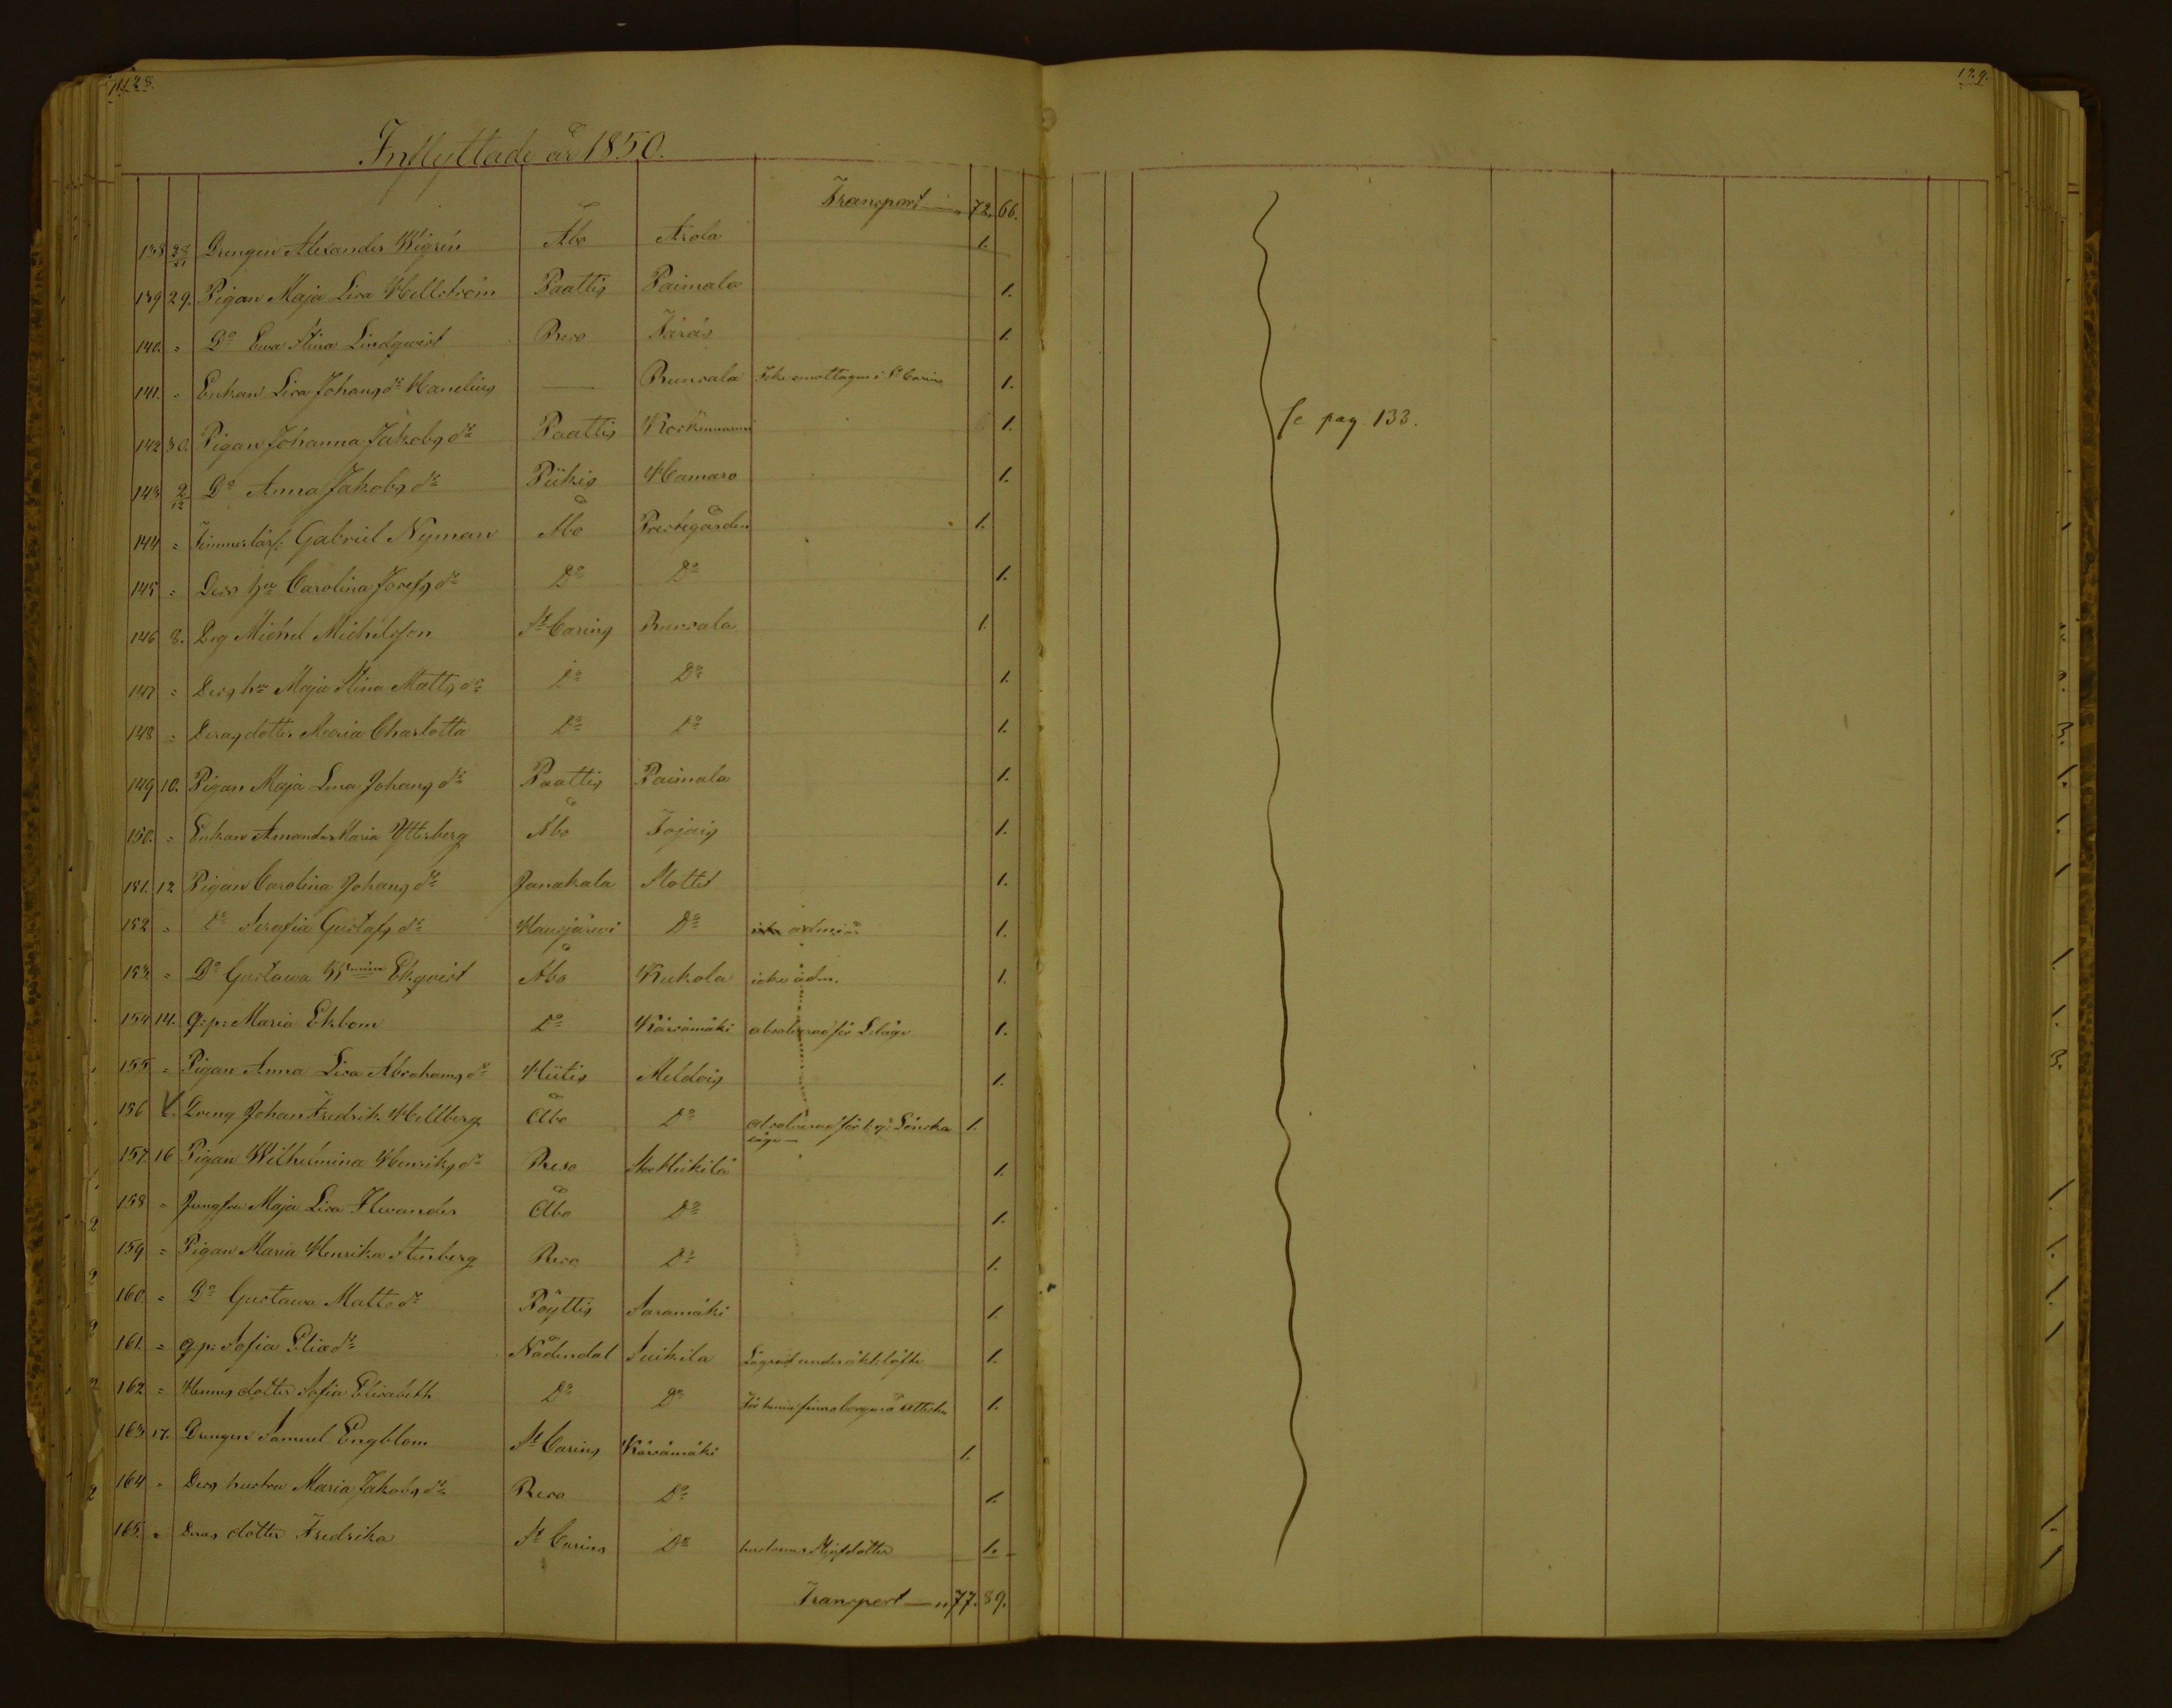 128.
Inflyttade år 1850.
Transport — " 72. 66.
138 28/11 Drengen Alexander Wigrén Åbo Arola 1.
139 29. Pigan Maja Lisa Hellström Paattis Paimala 1.
140. = Do Ewa Stina Lindqwist Reso 1.
141. = Enkan Lisa Johansdr Hanelius — Runsala Icke emottagen i St Carins 1.
142 30. Pigan Johanna Jakobsdr Paattis 1.
143 2/12 Do Anna Jakobsdr Piikis Hamaro 1.
144 = Gabriel Nyman Åbo Prestegården 1.
145 = Dess hu Carolina Josefsdr Do Do 1.
146 8. Drg Michel Michelsson St Carins Runsala 1.
147 = Dess hu Maja Stina Mattsdr Do Do 1.
148 = Deras dotter Maria Charlotta Do Do 1.
149 10. Pigan Maja Lena Johansdr Paattis Paimala 1.
150. = Enkan Amanda Maria Ytterberg Åbo 1.
151. 12 Pigan Carolina Johansdr Janakala Slottet 1.
152 = Do Serafia Gustafsdr Hausjärwi Do 1.
153. = Do Gustawa Wmina Ekqvist Åbo Kukola icke adm. 1.
154 14. q:p: Maria Ekbom Do Kärsämäki absolverad för 1.
155 = Pigan Anna Lisa Abrahamsdr Hiitis Meldois 1.
156 Dreng Johan Fredrik Hellberg Åbo Do absolverad för 1.
157 16 Pigan Wilhelmina Henriksdr Reso Stor Heikilä 1.
158 = Jungfru Maja Lisa Åbo Do 1.
159 = Pigan Maria Henrika Stenberg Reso Do 1.
160. = Do Gustawa Mattsdr Pöyttis Saramäki 1.
161. = q:p: Sofia Eliædr Nådendal Suikila Lägrad under äkt. löfte 1.
162 = Hennes dotter Sofia Elisabeth Do Do 1.
163 17. Drengen Samuel Engblom St Carins Kärsämäki 1.
164 = Dess hustru Maria Jakobsdr Reso Do 1.
165. = Deras dotter Fredrika St Carins Do hustruns 1.
Transport — " 77. 89.
129.
Se pag. 133.